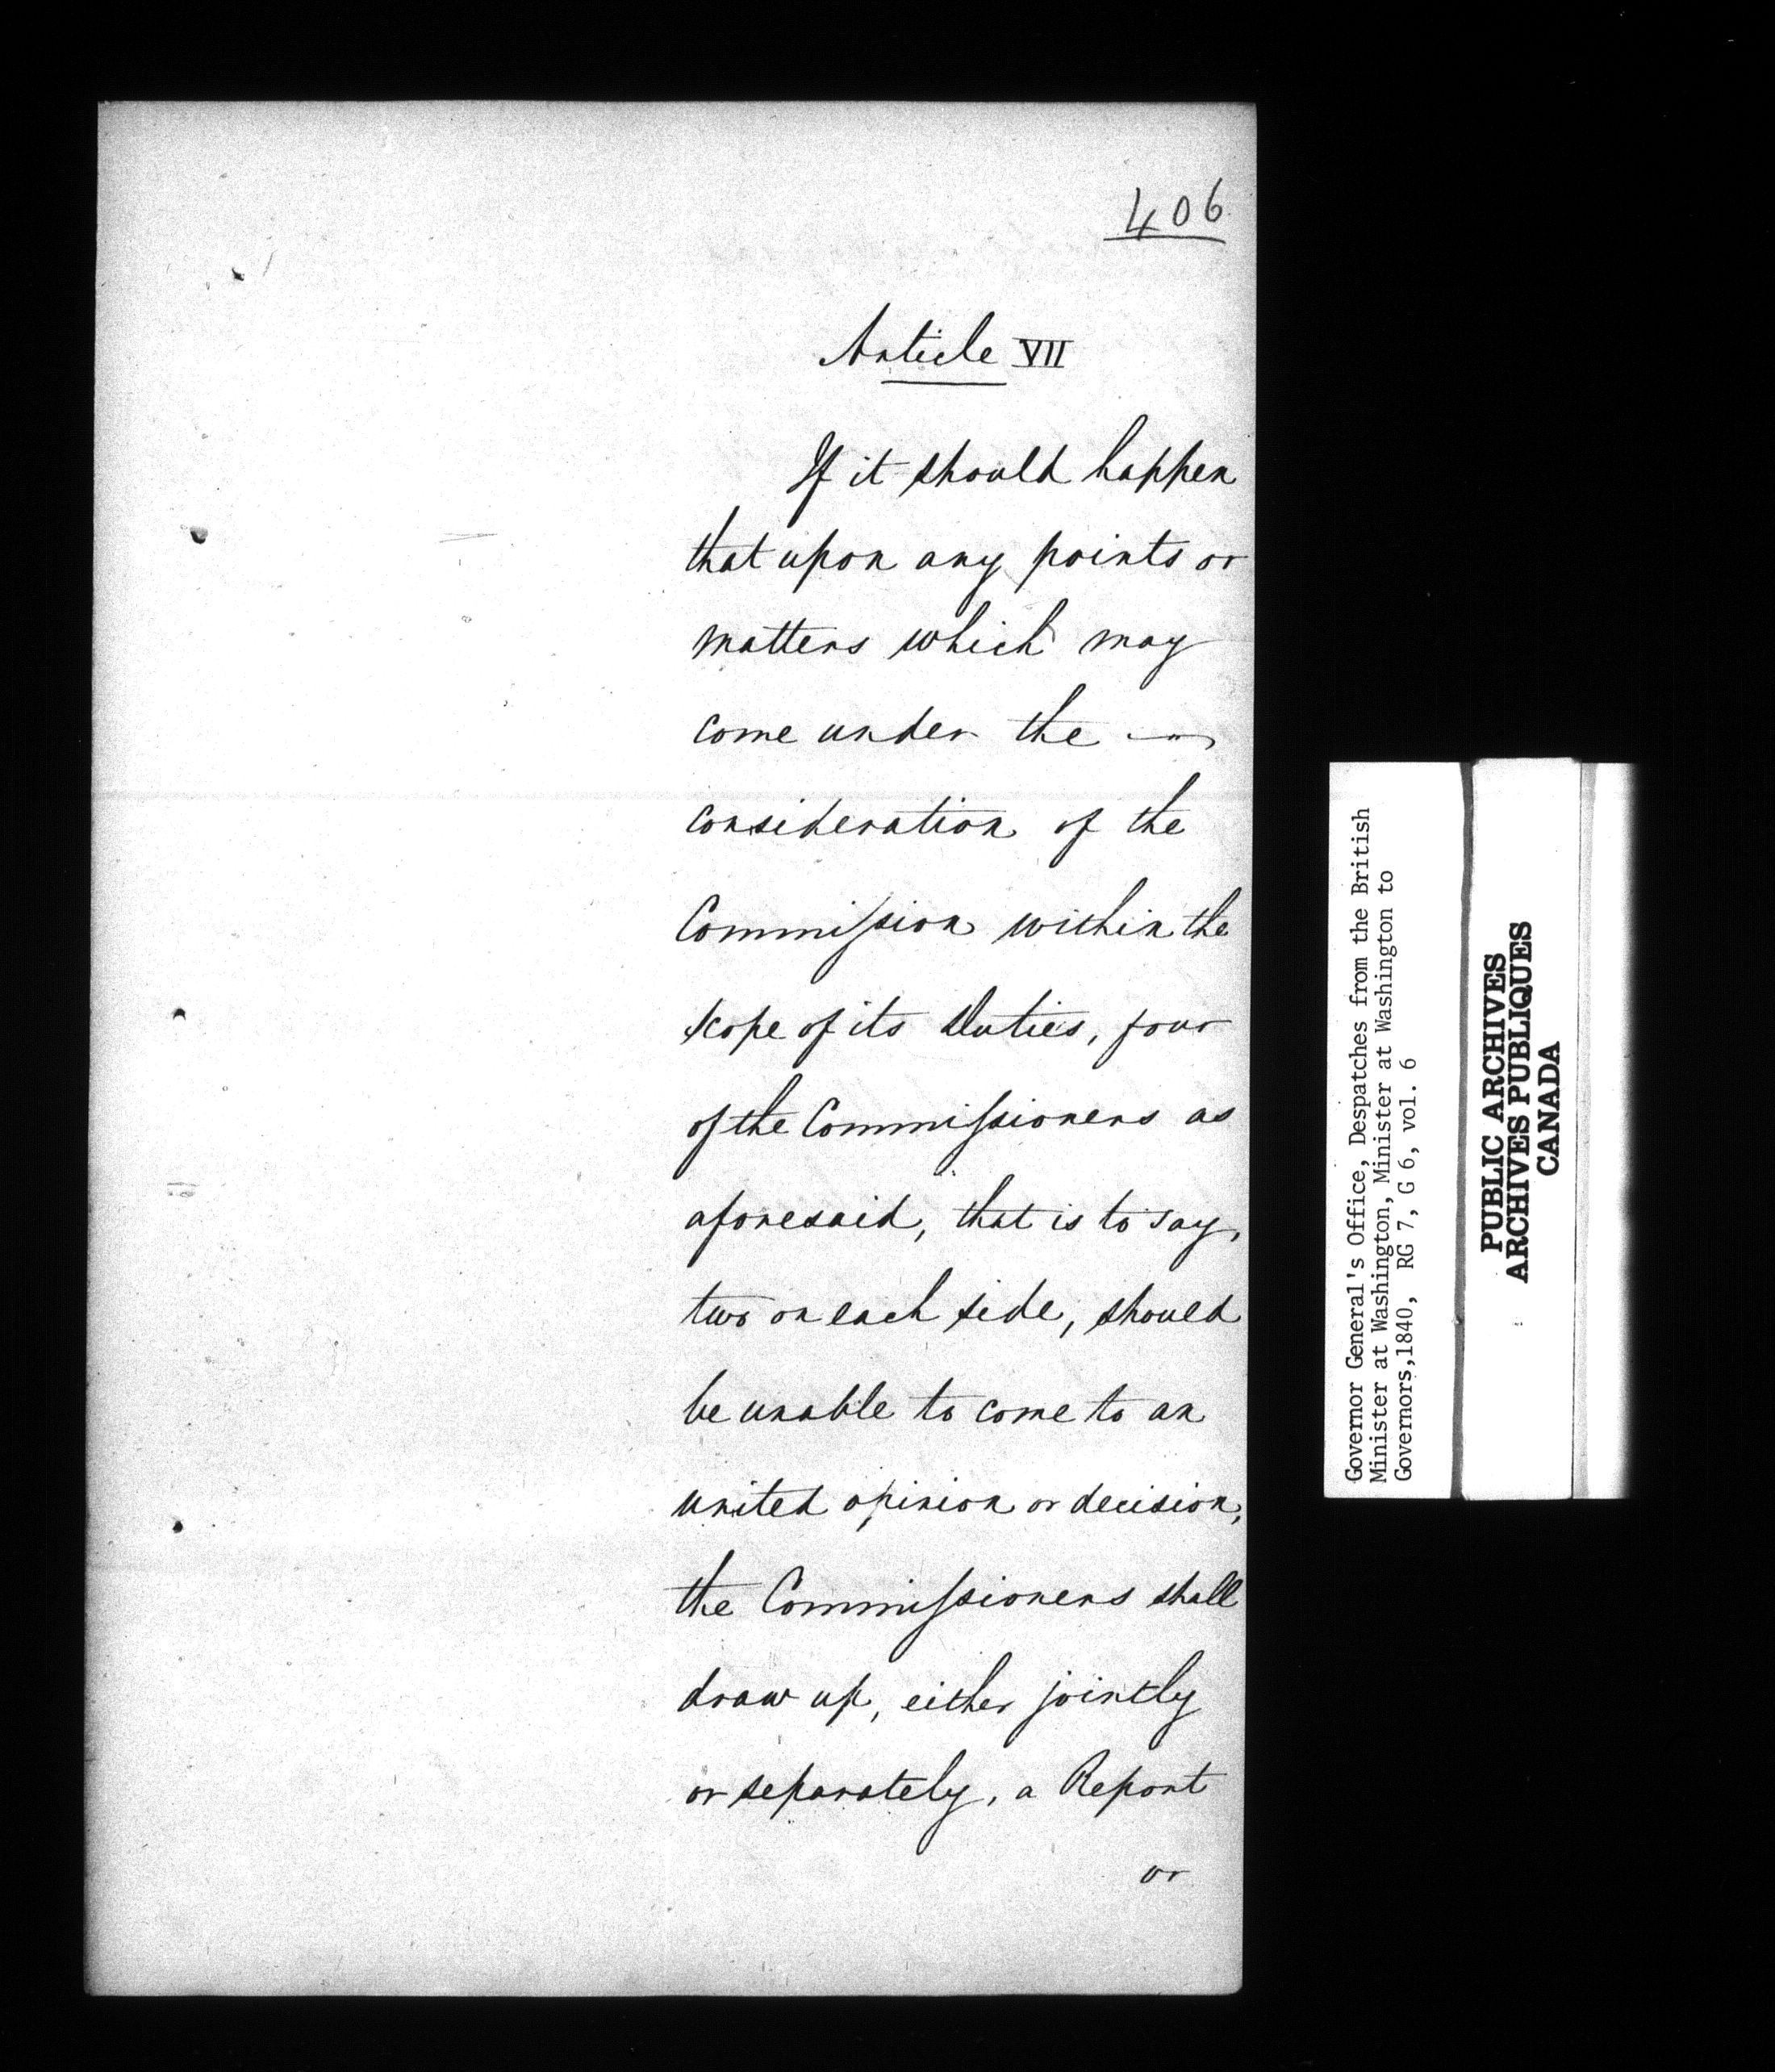 406
Article VII
If it should happen
that upon any points or
matters which may
come under the —
consideration of the
Commission within the
scope of its duties, four
of the Commissioners as
aforesaid, that is to say,
two on each side, should
be unable to come to an
united opinion or decision,
the Commissioners shall
draw up, either jointly
or separately, a Report
or
Governor General's Office, Despatches from the British
Minister at Washington, Minister at Washington to
Governors,1840, RG 7, G 6, vol. 6
PUBLIC ARCHIVES
ARCHIVES PUBLIQUES
CANADA